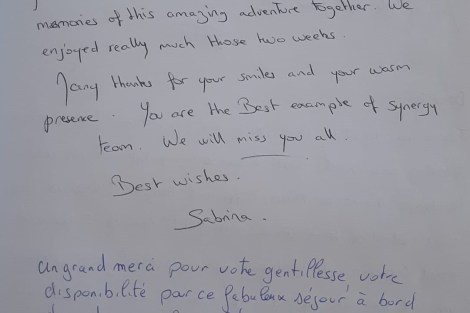 memories of this amazing adventure together. We
enjoyed really much those two weeks.
Many thanks for your smiles and your warm
presence. You are the Best example of synergy
team. We will miss you all.
Best wishes.
Sabrina.
un grand merci pour votre gentillesse votre
disponibilité par ce fabuleux séjour à bord